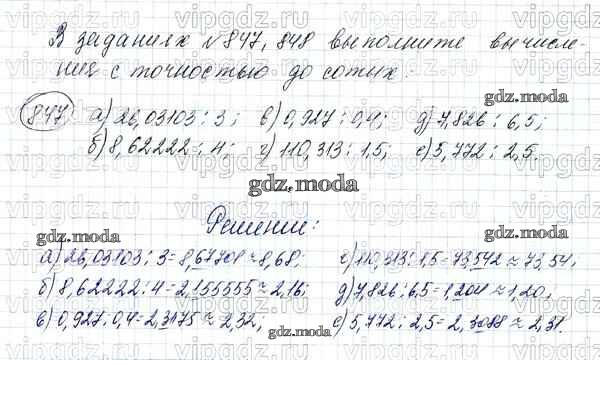 В заданиях №847, 848 выполните вычисле-
ния с точностью до сотых.
gdz.moda
847 а) 26,03103 : 3; в) 0,927 : 0,4; д) 7,826 : 6,5;
б) 8,62222 : 4; г) 110,313 : 1,5; е) 5,772 : 2,5.
gdz.moda
Решение:
gdz.moda gdz.moda
а) 26,03103 : 3 = 8,67701 ≈ 8,68; г) 110,313 : 1,5 = 73,542 ≈ 73,54;
б) 8,62222 : 4 = 2,155555 ≈ 2,16; д) 7,826 : 6,5 = 1,204 ≈ 1,20;
в) 0,927 : 0,4 = 2,3175 ≈ 2,32; е) 5,772 : 2,5 = 2,3088 ≈ 2,31.
gdz.moda